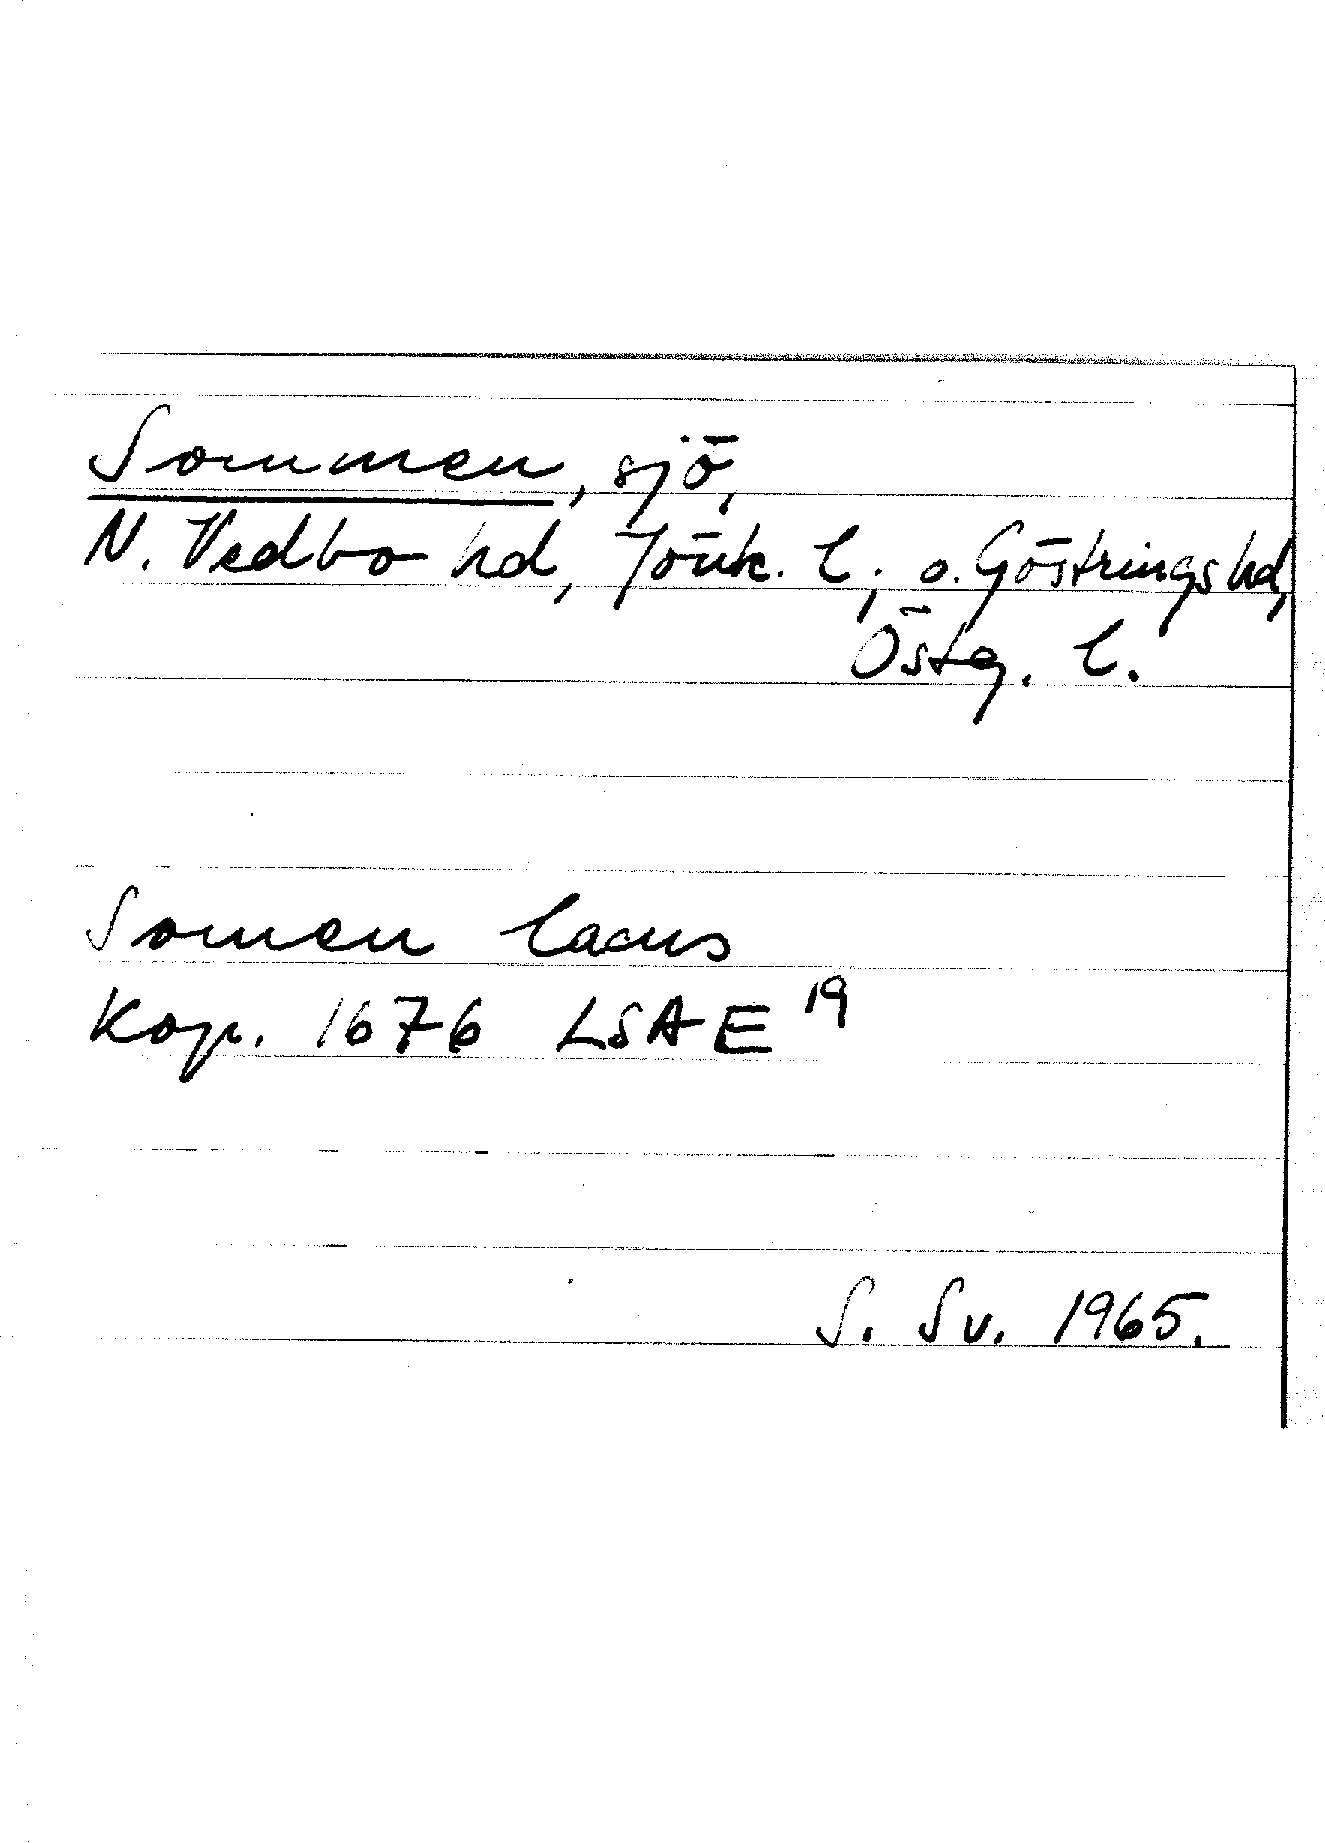 Sommen, sjö,
N. Vedbo hd, Jönk. l; o. Göstrings hd,
Östg. l.
Somen lacus
Kop. 1676 LSA E 19
S. Sv. 1965.